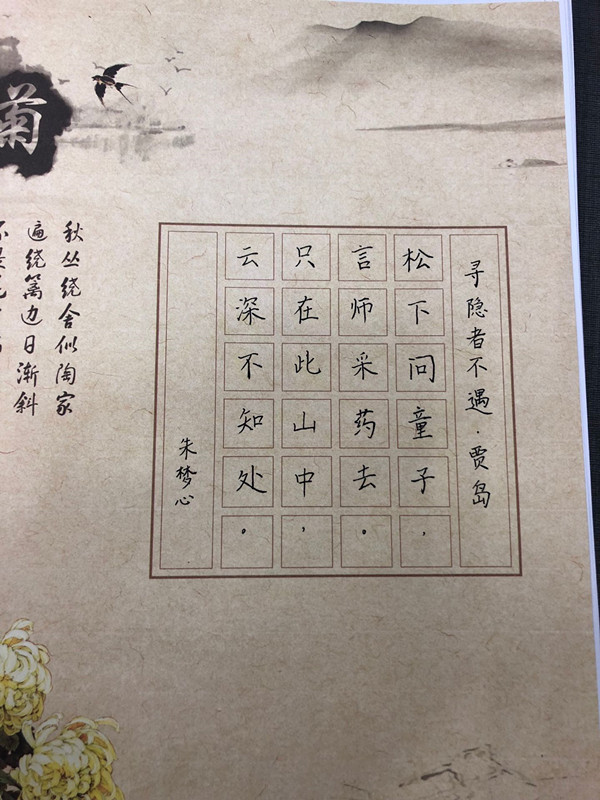 寻隐者不遇·贾岛
松下问童子，
言师采药去。
只在此山中，
云深不知处。
朱梦心
菊
秋丛绕舍似陶家
遍绕篱边日渐斜